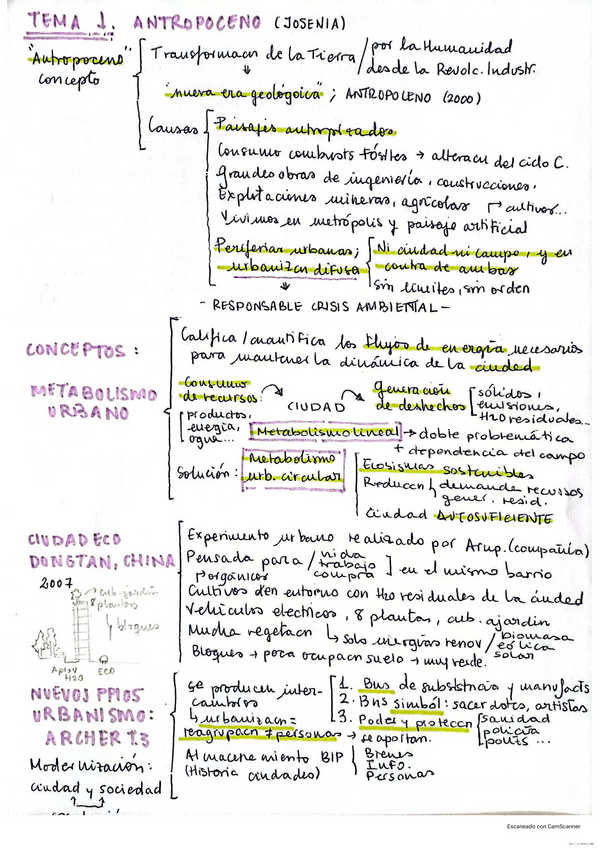 TEMA 1. ANTROPOCENO (JOSENIA)
"Antropoceno" concepto
Transformacn de la Tierra / por la Humanidad
desde la Revolc. Industr.
"nueva era geológica"; ANTROPOCENO (2000)
Causas
Paisajes antropizados
Consumo combusts fósiles → alteracn del ciclo C.
Grandes obras de ingeniería, construcciones,
Explotaciones mineras, agrícolas → cultivos...
Vivimos en metrópolis y paisaje artificial
Periferias urbanas; urbanizcn difusa
Ni ciudad ni campo, y en
contra de ambas
sin límites, sin orden
- RESPONSABLE CRISIS AMBIENTAL -
CONCEPTOS:
METABOLISMO URBANO
Califica / cuantifica los flujos de energía necesarios
para mantener la dinámica de la ciudad
Consumo de recursos:
productos, energía, agua...
CIUDAD
Generación de deshechos
sólidos, emisiones, H2O residuales...
Metabolismo lineal → doble problemática
+ dependencia del campo
Solución: Metabolismo urb. circular
Ecosismas sostenibles
Reduccn demanda recursos
gener. resid.
Ciudad AUTOSUFICIENTE
CIUDAD ECO
DONGTAN, CHINA
2007
cub. jardín
8 plantas
bloques
Aprov H2O
ECO
Experimento urbano realizado por Arup. (compañía)
Pensada para / vida trabajo compra ] en el mismo barrio
orgánicos
Cultivos den entorno con H2O residuales de la ciudad
Vehículos electricos, 8 plantas, cub. ajardin
Mucha vegetacn ↳ solo energías renov / biomasa eólica solar
Bloques → poca ocupacn suelo → muy verde.
NUEVOS PPIOS URBANISMO: ARCHER T.3
Modernización:
ciudad y sociedad
se producen intercambios
↳ urbanizacn =
reagrupacn ≠ personas → se aportan.
1. Bns de subsistncia y manufacts
2. Bns simból: sacerdotes, artistas
3. Poder y proteccn [ sanidad
policía
polits ...
Almacenamiento BIP
(Historia ciudades)
Bienes
Info.
Personas
Escaneado con CamScanner